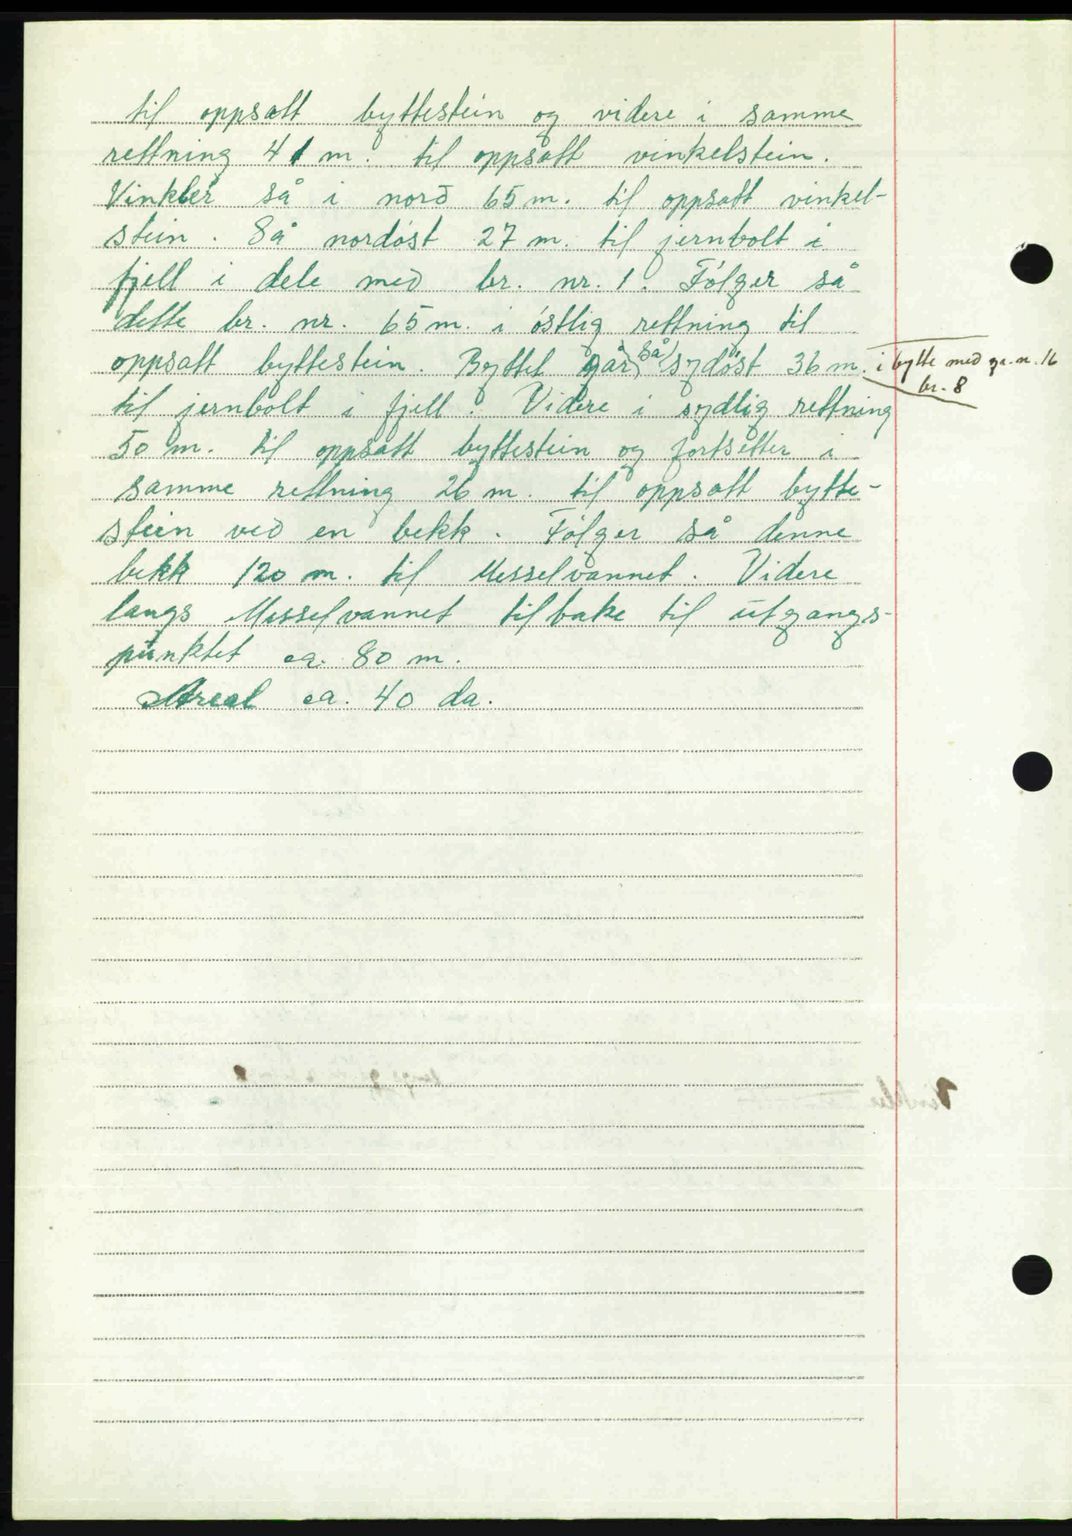 til oppsatt byttestein og videre i samme
rettning 41 m. til oppsatt vinkelstein.
Vinkler så i nord 65 m. til oppsatt vinkel-
stein. Så nordøst 27 m. til jernbolt i
fjell i dele med br. nr. 1. Følger så
dette br. nr. 65 m. i østlig rettning til
oppsatt byttestein. Byttet går så sydøst 36 m. i bytte med gr. n. 16
br. 8
til jernbolt i fjell. Videre i sydlig rettning
50 m. til oppsatt byttestein og fortsetter i
samme rettning 26 m. til oppsatt bytte-
stein ved en bekk. Følger så denne
bekk 120 m. til Messelvannet. Videre
langs Messelvannet tilbake til utgangs-
punktet ca. 80 m.
Areal ca. 40 da.